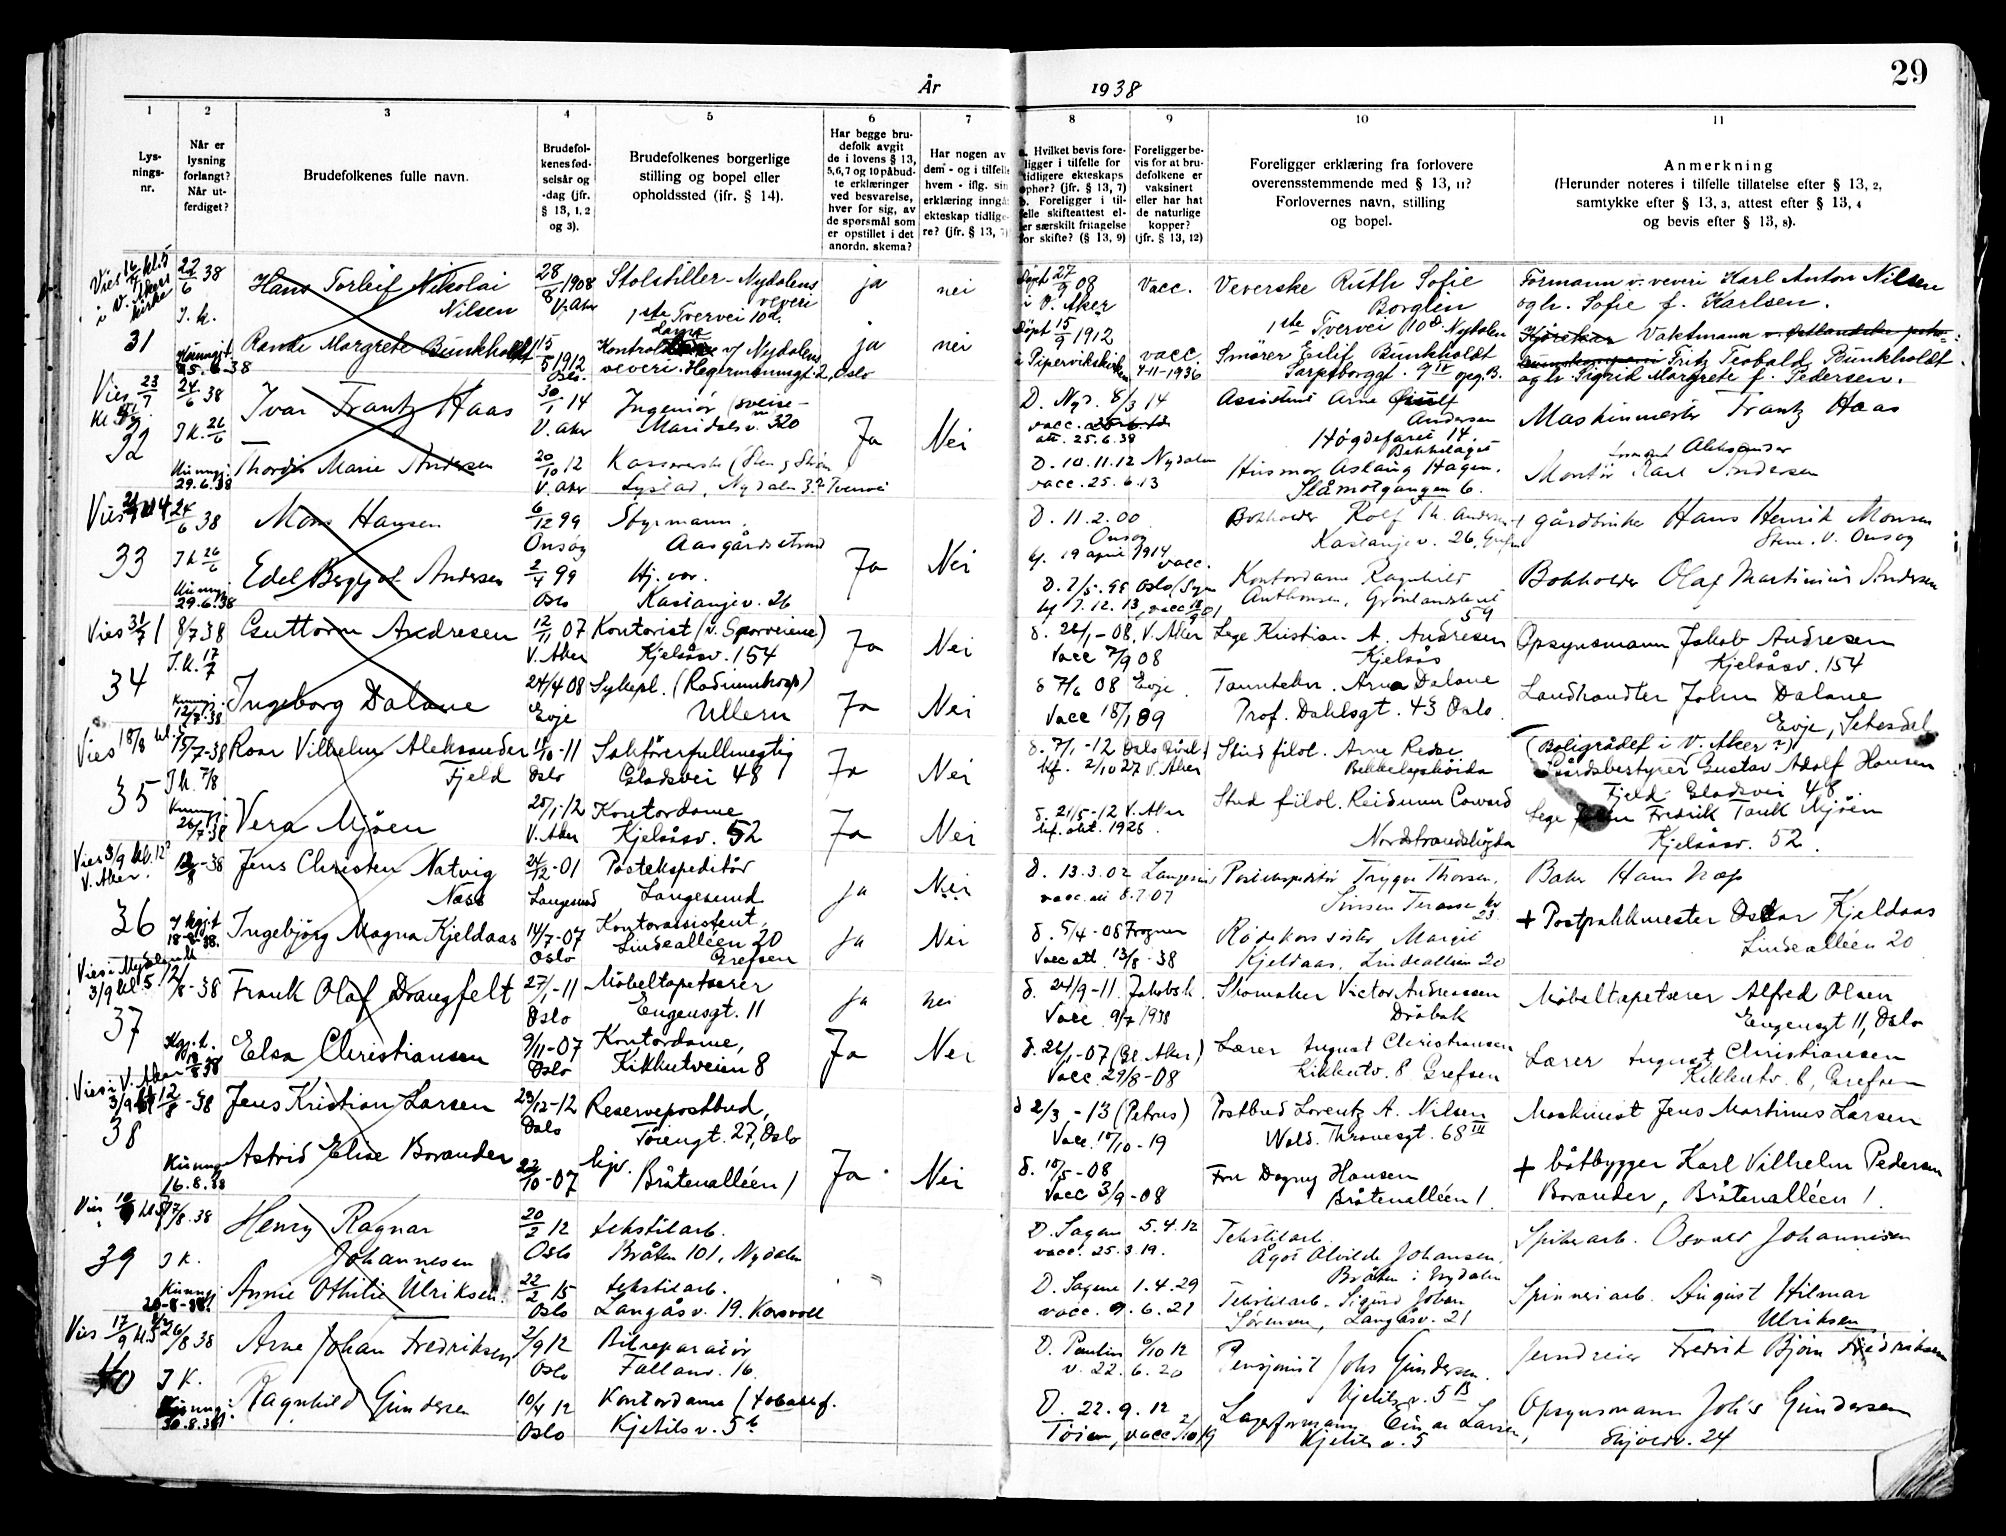 29
År 1938
1
2
3
4
5
6
7
8
9
10
11
Lys-
nings-
nr.
Når er
lysning
forlangt?
Når ut-
ferdiget?
Brudefolkenes fulle navn.
Brudefol-
kenes fød-
selsår og
-dag (jfr.
§ 13, 1, 2
og 3).
Brudefolkenes borgerlige
stilling og bopel eller
opholdssted (ifr. § 14).
Har begge bru-
defolk avgit
de i lovens § 13,
5, 6, 7 og 10 påbud-
te erklæringer
ved besvarelse,
hver for sig, av
de spørsmål som
er opstillet i det
anordn. skema?
Har nogen av
dem - og i tilfelle
hvem - iflg. sin
erklæring inngå
ekteskap tidlige-
re? (jfr. § 13,
a. Hvilket bevis fore-
ligger i tilfelle for
tidligere ekteskaps
ophør? (jfr. § 13, 7)
b. Foreligger i til-
felle skifteattest el-
er særskilt fritagelse
for skifte? (§ 13, 9)
Foreligger be-
vis for at bru-
defolkene er
vaksinert
eller har hat
de naturlige
kopper?
(jfr. § 13, 12)
Foreligger erklæring fra forlovere
overensstemmende med § 13, 11?
Forlovernes navn, stilling
og bopel.
Anmerkning
(Herunder noteres i tilfelle tillatelse efter § 13, 2,
samtykke efter § 13, 3, attest efter § 13, 4
og bevis efter § 13, 8).
31
22/6 38
J.k.
Hans Torleif Nikolai
Nilsen
28/8 1908
V. Aker
Stolstiller - Nydalens
veveri
1ste Tvervei 10d.
ja
nei
Døpt 27/9 08
i V. Aker
Vacc.
Veverske Ruth Sofie
Borglin
1ste Tvervei 10d. Nydalen
Formann v. veveri Karl Anton Nilsen
og h. Sofie f. Karlsen.
Randi Margrete Bunkholdt
15/5 1912
Oslo.
v/ Nydalens
veveri. Hegermannsgt. 2, Oslo
ja
nei
Døpt 15/9 1912
vacc.
4-11-1936
Smører Eilif Bunkholdt
Sarpsborggt. 9 IV opg. B.
Vaktmann
Fritz Teobald Bunkholdt
og h. Sigrid Margrete f. Pedersen.
Vies 23/7
32
24/6 38
J.k. 26/6
Kunngj.
29.6.38
Ivar Frantz Haas
30/1 14
V. Aker
Ingeniør
Maridalsv. 320
Ja
Nei
D. Nyd. 8/3 14
att. 25.6.38
Assistent Arne
Andersen
Høgdefaret 14.
Bekkelaget
Maskinmester Frantz Haas
Thordis Marie Andersen
20/10 12
V. Aker
D. 10.11.12 Nydalen
vacc. 25.6.13
Husmor Aslaug Hagen.
Slåmotgangen 6.
Aleksander
Montør Karl Andersen
33
24/6 38
J.k. 26/6
Kunngj.
29.6.38
Mons Hansen
6/12 99
Onsøy
Styrmann.
Aasgårdstrand
Ja
Nei
D. 11.2.00
Onsøy
kf. 19 april 1914
vacc.
Bokholder Rolf Th. Andersen
Kastanjev. 26,
gårdbruker Hans Henrik Monsen
Onsøy
Edel Bergljot Andersen
2/4 99
Oslo
Hj. vær.
Kastanjev. 26
Kontordame Ragnhild
Anthonsen, Grønlandsleret
59
Bokholder Olaf Martinius Andersen
Vies 31/7
34
8/7 38
J.k. 17/7
Kunngj.
12/7-38
Guttorm Andresen
12/11 07
V. Aker
Kontorist (v. Sporveiene)
Kjelsåsv. 154
Ja
Nei
d. 26/1-08, V. Aker
Vacc 7/9 08
Lege Kristian A. Andresen
Kjelsås
Opsynsmann Jakob Andresen
Kjelsåsv. 154
Ingeborg Dalane
24/4 08
Evje
Sykepl. (Radiumhosp)
Ullern
Ja
Nei
d 7/6 08 Evje
Vacc 18/1 09
Tanntekn. Arne Dalane
Prof. Dahlsgt. 43 Oslo.
Landhandler John Dalane
Evje, Setesdal
35
15/7-38
J.k. 7/8
Kunngj.
26/7-38
Roar Vilhelm Aleksander
Fjeld
Oslo
Sakførerfullmegtig
Gladsvei 48
Ja
Nei
kf. 2/10 27 V. Aker
Stud filol. Arne Reise
Bekkelagshøida
(Boligrådet i V. Aker?)
Gårdsbestyrer Gustav Adolf Hansen
Fjeld Gladsvei 48.
Vera Mjøen
25/1-12
V. Aker
Kontordame
Kjelsåsv. 52
Ja
Nei
d. 21/5-12 V. Aker
kf. okt. 1926.
Stud filol. Reidunn Coward
Nordstrandshøgda
Lege Fredrik Tank Mjøen
Kjelsåsv. 52.
Vies 3/9 kl. 12
V. Aker.
36
12/8-38
18-8-38.
Jens Christen Natvig
Næss
24/12-01
Langesund
Postekspeditør
Langesund
ja
Nei
D. 13.3.02
Postekspeditør Trygve Thorsen.
Sinsen Terasse
Baker Hans Næss
Ingebjørg Magna Kjeldaas
14/7-07
Oslo
Kontorassistent,
Lindealléen 20
Grefsen
ja
Nei
d. 5/4-08 Frogner
Vacc att. 13/8-38
Rødekorssøster Margit
Kjeldaas, Lindealléen 20
+ Postpakkmester Oskar Kjeldaas
Lindealléen 20
3/9 kl. 5
37
12/8-38
Frank Olaf Drangfelt
27/1-11
Oslo
Møbeltapetserer
Eugensgt. 11
ja
nei
d. 24/9-11. Jakobsk.
Vacc 9/7 1938
Skomaker Victor Andreassen
Drøbak
Møbeltapetserer Alfred Olsen
Eugensgt 11, Oslo
Elsa Christiansen
9/11-07
Oslo
Kontordame,
Kikkutveien 8
Ja
Nei
d. 26/1-07 (Gl. Aker)
Vacc. 29/8-08
Lærer August Christiansen
Kikkutv. 8 Grefsen
Lærer August Christiansen
Kikkutv. 8, Grefsen
Vies i V. Aker
38
12/8-38
Kunngj.
16.8.38
Jens Kristian Larsen
23/12-12
Oslo
Reservepostbud,
Tøiengt. 27, Oslo
d 2/3-13 (Petrus)
Vacc. 10/10-19
Postbud Lorentz A. Nilsen
Wald. Thranesgt. 68 III
Maskinist Jens Martinus Larsen
Astrid Elise Borander
22/10-07
hjv.
Bråtenalléen 1
Ja.
Nei
d. 10/5-08
Vacc 3/9-08
Fru Dagny Hansen
Bråtenalléen 1.
+ båtbygger Karl Vilhelm Pedersen
Borander, Bråtenalléen 1.
39
17/8.38
J K.
Kunngj.
20-8-38
Henry Ragnar
Johannesen
20/2 12
Oslo
tekstilarb.
Bråten 101, Nydalen
D. Sagene 5.4.12
vacc. 25.3.19.
Tekstilarb.
Ågot Alvilde Johansen,
Bråten i Nydalen
Spikerarb. Osvald Johannesen
Annie Othilie Ulriksen.
22/2 15
Oslo
tekstilarb.
Langåsv. 19. Korsvoll
D. Sagene 1.4.29
vacc. 9.6.21
Tekstilarb. Sigurd Johan
Sørensen, Langåsv. 21
Spinneriarb. August Hilmar
Ulriksen
Vies 17/9 kl. 5
40
26/8 38
J K.
Kunngj.
30.8.38
Arne Johan Fredriksen
2/9 12
Oslo
Bilreparatør
Fallanv. 16.
D. Paulus 6/10 12
v. 22.6.20
Pensjonist Johs Gundersen.
Kjetilsv. 5 B
Jerndreier Fredrik Bjørn Fredriksen
Ragnhild Gundersen
10/4 12
Oslo
Kontordame (tobakkf.
Kjetilsv. 5b
D. 22.9.12
Tøien, vacc 2/10 19
Lagerformann Einar Larsen,
Kjetilsv. 5
Opsynsmann Joh's Gundersen
24